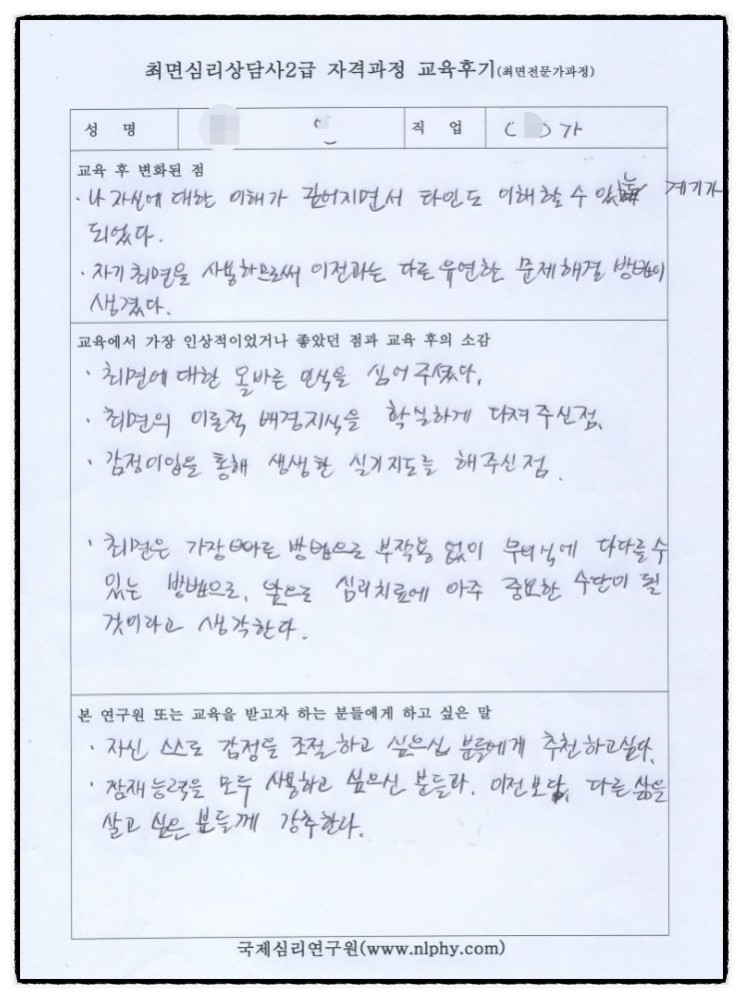 최면심리상담사2급 자격과정 교육후기(최면전문가과정)
성 명
직 업 ( )가
교육 후 변화된 점
· 나 자신에 대한 이해가 깊어지면서 타인도 이해할 수 있는 계기가
되었다.
· 자기최면을 사용하므로써 이전과는 다른 유연한 문제해결 방법이
생겼다.
교육에서 가장 인상적이었거나 좋았던 점과 교육 후의 소감
· 최면에 대한 올바른 인식을 심어주셨다.
· 최면의 이론적 배경지식을 확실하게 다져주신점.
· 감정이입을 통해 생생한 실기지도를 해주신점.
· 최면은 가장 빠른 방법으로 부작용 없이 무의식에 다다를 수
있는 방법으로, 앞으로 심리치료에 아주 중요한 수단이 될
것이라고 생각한다.
본 연구원 또는 교육을 받고자 하는 분들에게 하고 싶은 말
· 자신 스스로 감정을 조절하고 싶으신 분들에게 추천하고싶다.
· 잠재능력을 모두 사용하고 싶으신 분들과. 이전보다, 다른 삶을
살고 싶은 분들께 강추한다.
국제심리연구원(www.nlphy.com)